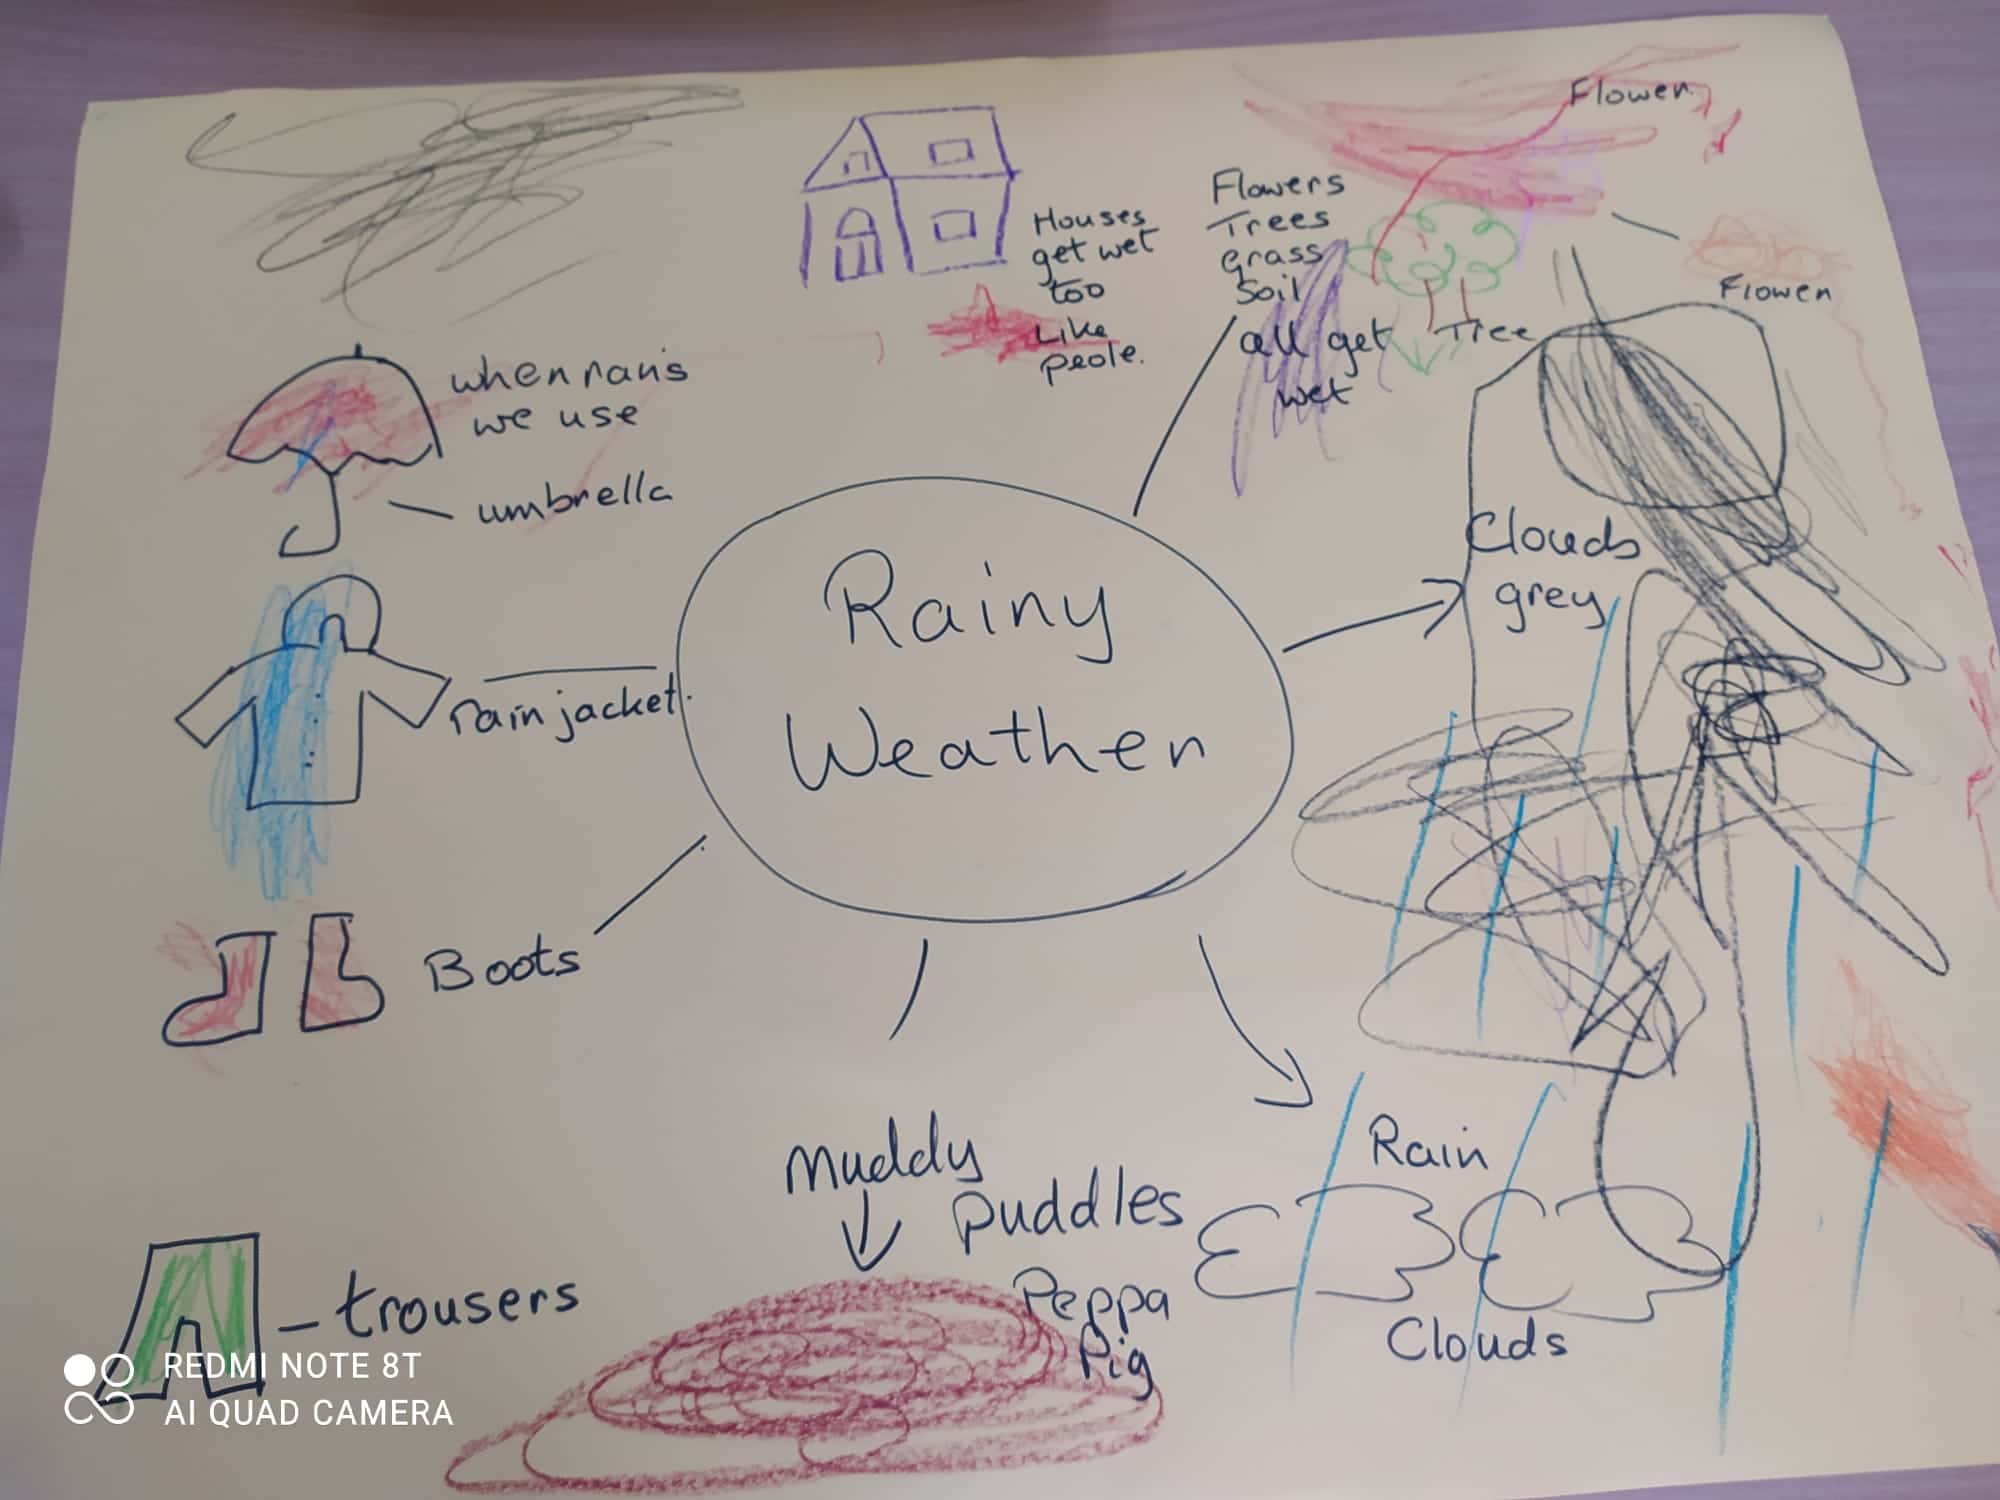 Flower
Houses
get wet
too
Like
peole.
Flowers
Trees
grass
Soil
all get
wet
Tree
Flower
when rain's
we use
umbrella
Rainy
Weather
Clouds
grey
rain jacket.
Boots
Muddy
puddles
Peppa
Pig
Rain
Clouds
trousers
REDMI NOTE 8T
AI QUAD CAMERA